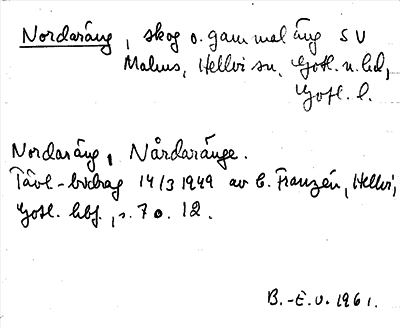 Nordaräng, skog o. gammal äng SV
Malms, Hellvi sn, Gotl. n. hd,
Gotl. l.
Nordaräng, Nårdaränge.
Tävl-bidrag 14/3 1949 av C. Franzén, Hellvi,
Gotl. hbf., s. 7 o. 12.
B.-E. O. 1961.